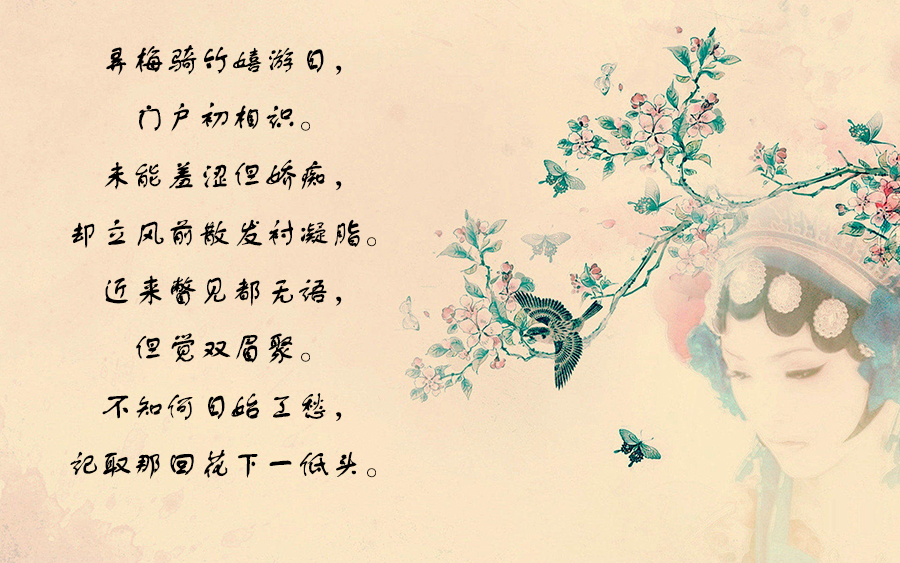 弄梅骑竹嬉游日，
门户初相识。
未能羞涩但娇痴，
却立风前散发衬凝脂。
近来瞥见都无语，
但觉双眉聚。
不知何日始工愁，
记取那回花下一低头。